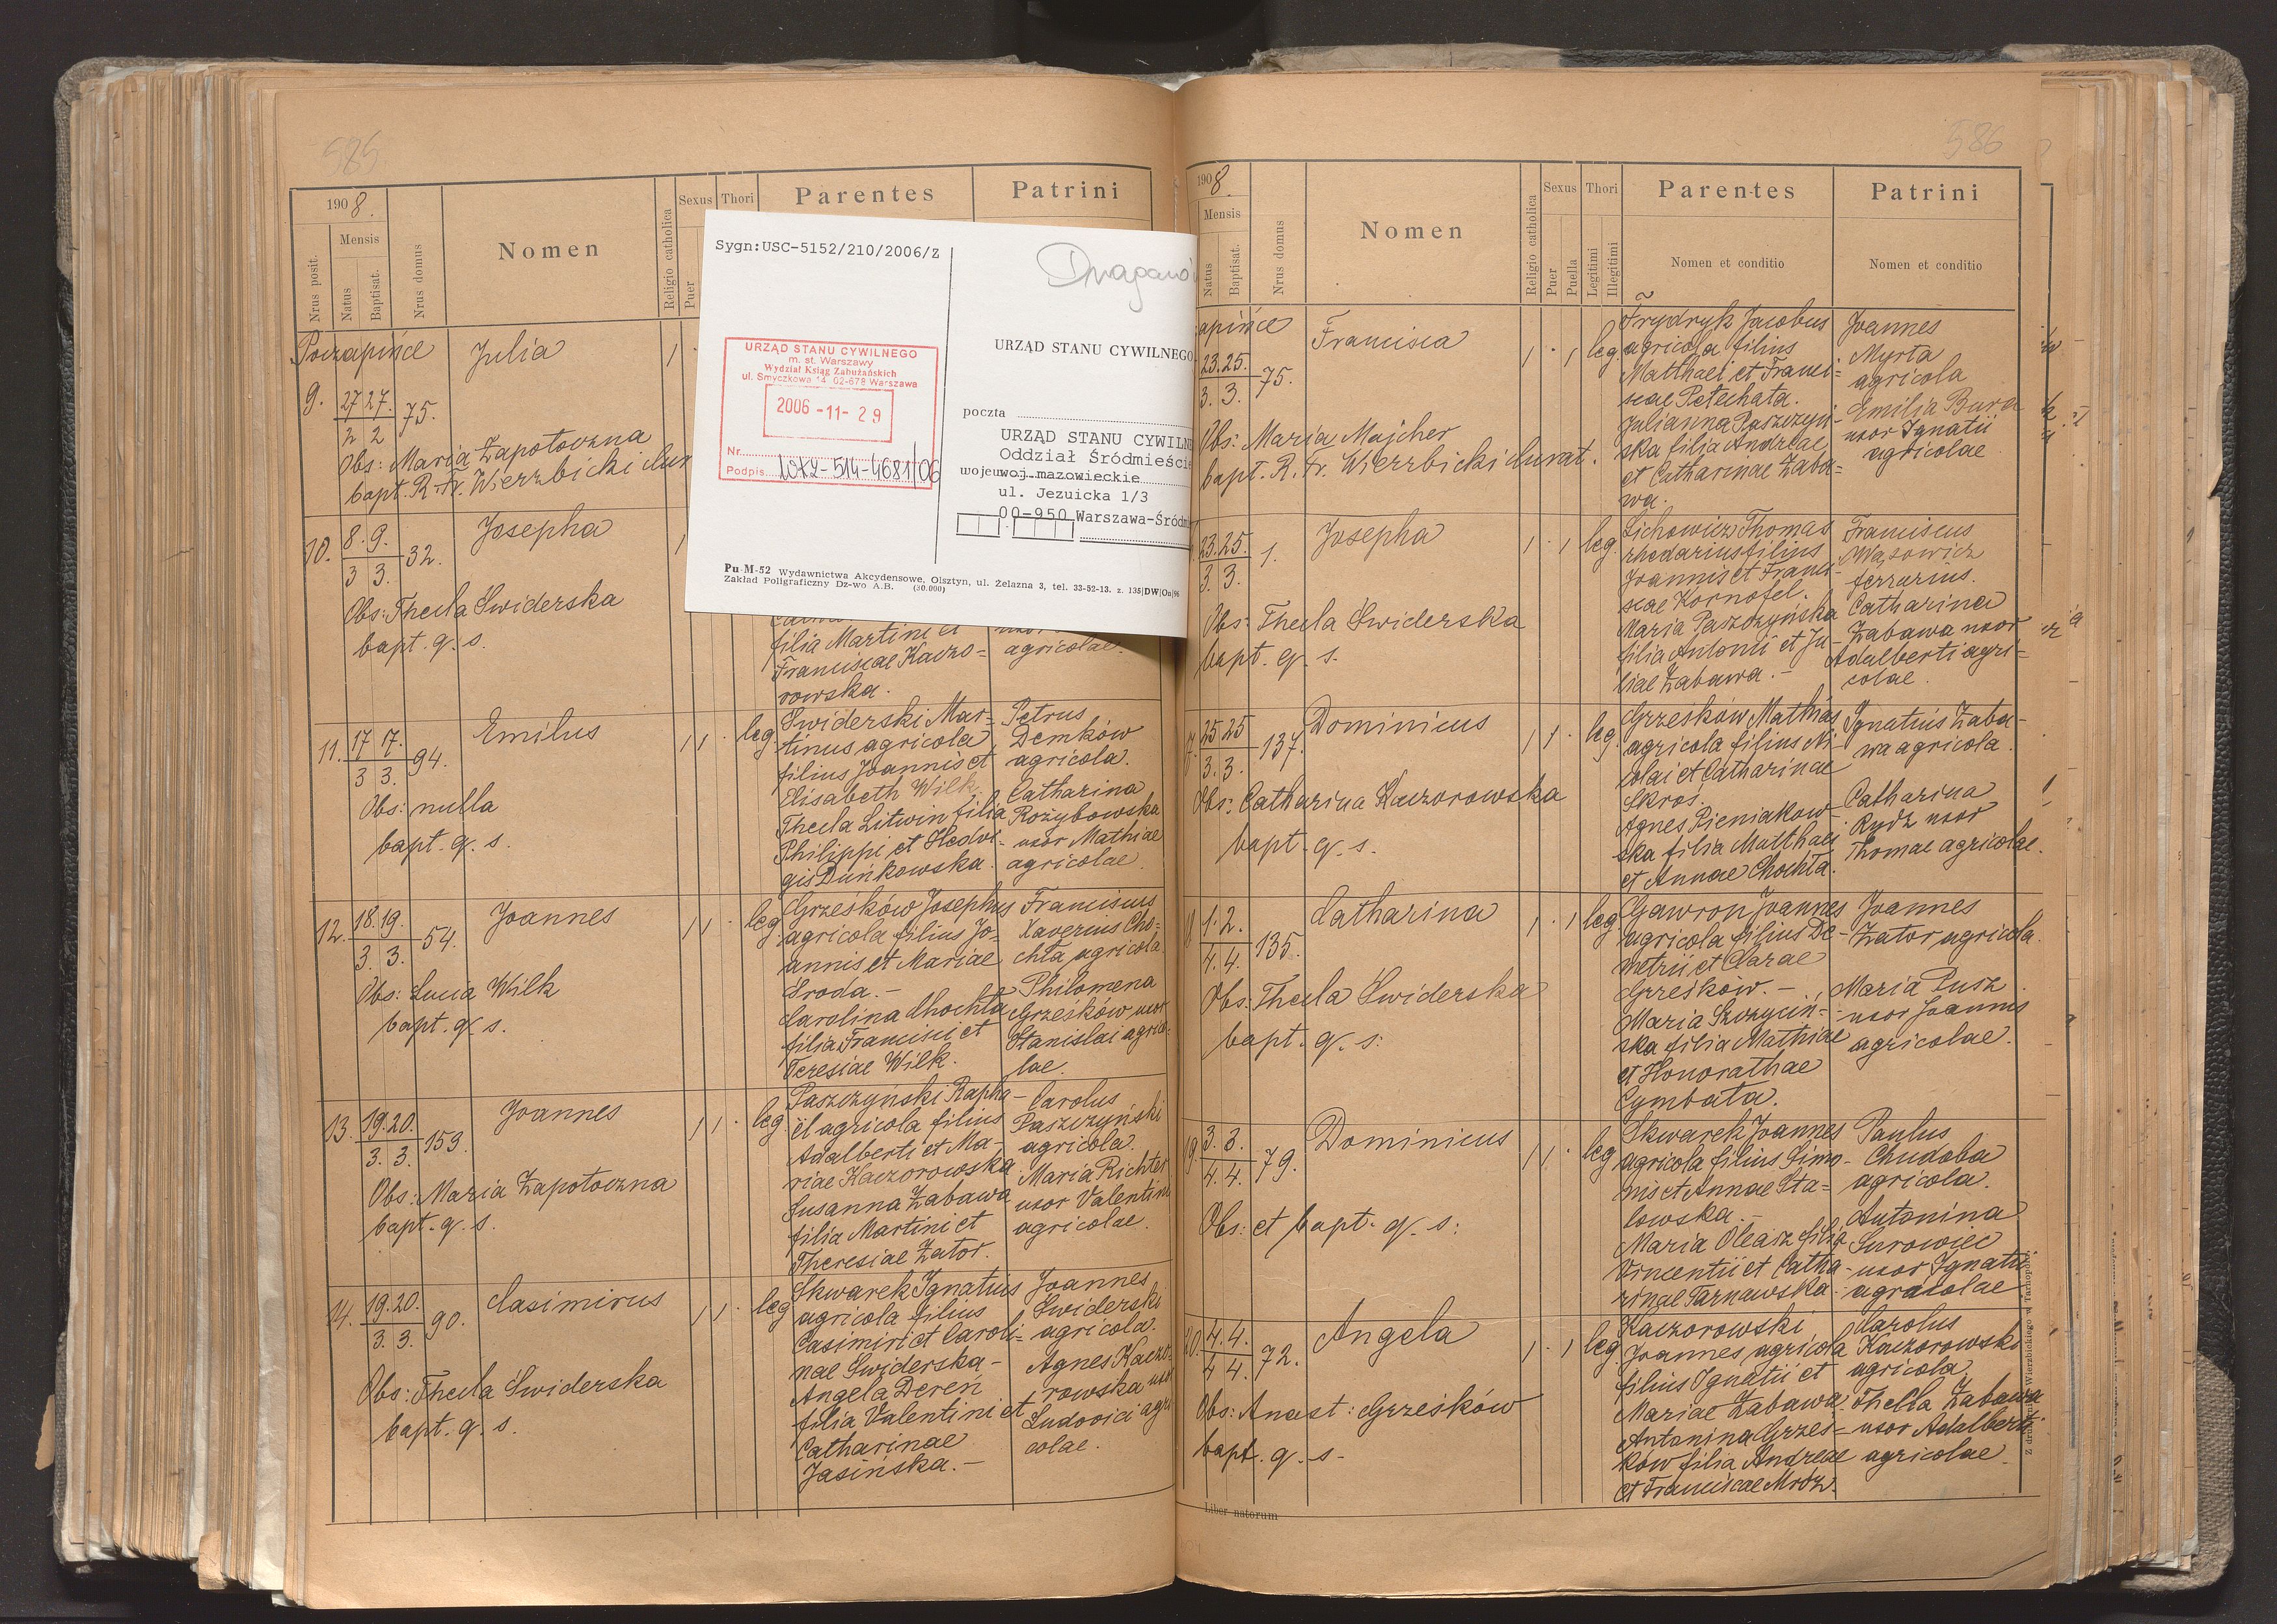 585
1908.
Nrus posit.
Mensis
Natus
Baptisat.
Nrus domus
Nomen
Religio catholica
Sexus
Puer
Thori
Parentes
Patrini
Poczapińce
Julia
9. 27 27. 75.
2 2
Obs: Maria Zapotoczna
bapt. R. Fr. Wierzbicki
10. 8. 9. 32.
3 3.
Josepha
Obs: Thecla Swiderska
bapt. q. s.
filia Martini et
Franciscae Kaczo-
rowska.
agricolae.
11. 17 17. 94.
3 3.
Emilus
leg.
Obs: nulla
bapt. q. s.
Swiderski Mar-
tinus agricola
filius Joannis et
Elisabeth Wilk.
Thecla Litwin filia
Philippi et Hedvi-
gis Duńkowska.
Petrus
Demków
agricola.
Catharina
Rozybowska
uxor Mathiae
agricolae.
12. 18. 19. 54.
3. 3.
Joannes
leg.
Obs: Lucia Wilk
bapt. q. s.
Grzesków Josephus
agricola filius Jo-
annis et Mariae
Sroda. -
Carolina Chochta
filia Francisci et
Teresiae Wilk.
Franciscus
Xaverius Cho-
chta agricola.
Philomena
Grzesków uxor
Stanislai agrico-
lae.
13. 19. 20. 153.
3. 3.
Joannes
leg.
Obs: Maria Zapotoczna
bapt. q. s.
Paszczyński Rapha-
ël agricola filius
Adalberti et Ma-
riae Kaczorowska.
Susanna Zabawa
filia Martini et
Theresiae Zator.
Carolus
Paszczyński
agricola.
Maria Richter
uxor Valentini
agricolae.
14. 19. 20. 90.
3. 3.
Casimirus
leg
Obs: Thecla Swiderska
bapt. q. s.
Skwarek Ignatius
agricola filius
Casimiri et Caroli-
nae Swiderska -
Angela Dereń
filia Valentini et
Catharinae
Jasińska. -
Joannes
Swiderski
agricola.
Agnes Kaczo-
rowska uxor
Ludovici agri
colae.
Sygn:USC-5152/210/2006/Z
URZĄD STANU CYWILNEGO
m. st. Warszawy
Wydział Ksiąg Zabużańskich
ul. Smyczkowa 14, 02-678 Warszawa
2006 -11- 29
Nr
Podpis
URZĄD STANU CYWILNEGO
poczta
URZĄD STANU CYWILN
Oddział Śródmieści
wojew
woj. mazowieckie
ul. Jezuicka 1/3
00-950 Warszawa-Śródm
Pu M-52 Wydawnictwa Akcydensowe, Olsztyn, ul. Żelazna 3, tel. 33-52-13. z. 135|DW|On|96
Zakład Poligraficzny Dz-wo A.B. (30.000)
586
1908.
Mensis
Natus
Baptisat.
Nrus domus
Nomen
Religio catholica
Sexus
Puer
Puella
Thori
Legitimi
Illegitimi
Parentes
Nomen et conditio
Patrini
Nomen et conditio
apińce
Francisca
23. 25. 75.
3. 3.
leg.
Obs: Maria Majcher
bapt. R. Fr. Wierzbicki Curat.
Frydryk Jacobus
agricola filius
Matthaei et Franci-
scae Petechata.
Julianna Paszczyń-
ska filia Andreae
et Catharinae Zaba-
wa.
Joannes
Myrta
agricola
Emilia Bura
uxor Ignatii
agricolae
23. 25. 1.
3. 3.
Josepha
leg
Obs: Thecla Swiderska
bapt. q. s.
Lichowicz Thomas
rhedarius filius
Joannis et Franci-
scae Kornofel.
Maria Paszczyńska
filia Antonii et Ju-
liae Zabawa. -
Franciscus
Wąsowicz
ferrarius.
Catharina
Zabawa uxor
Adalberti agri-
colae.
25 25 137.
3. 3.
Dominicus
leg.
Obs: Catharina Kaczorowska
bapt. q. s.
Grzesków Mathias
agricola filius Ni-
colai et Catharinae
Skroś.
Agnes Pieniakow-
ska filia Matthaei
et Annae Chochta.
Ignatius Zaba-
wa agricola.
Catharina
Rydz uxor
Thomae agricolae.
1. 2. 135.
4. 4.
Catharina
leg
Obs: Thecla Swiderska
bapt. q. s.
Gawron Joannes
agricola filius De-
metrii et Clarae
Grzesków. -
Maria Szczyciń-
ska filia Mathiae
et Honorathae
Cymbata.
Joannes
Zator agricola.
Maria Pusz
uxor Joannis
agricolae.
19 3. 3. 79.
4. 4.
Dominicus
leg
Obs: et bapt. q. s.
Skwarek Joannes
agricola filius Simo-
nis et Annae Sta-
lowska. -
Maria Oleasz filia
Vincentii et Catha-
rinae Tarnawska.
Paulus
Chudoba
agricola.
Antonina
Surowiec
uxor Ignatii
agricolae
4. 4. 72.
4 4.
Angela
leg.
Obs: Anast: Grzesków
bapt. q. s.
Kaczorowski
Joannes agricola
filius Ignatii et
Mariae Zabawa.
Antonina Grzes-
ków filia Andreae
et Franciscae Mróz.
Carolus
Kaczorowski
agricola.
Thecla Zabawa
uxor Adalberti
agricolae.
Liber natorum